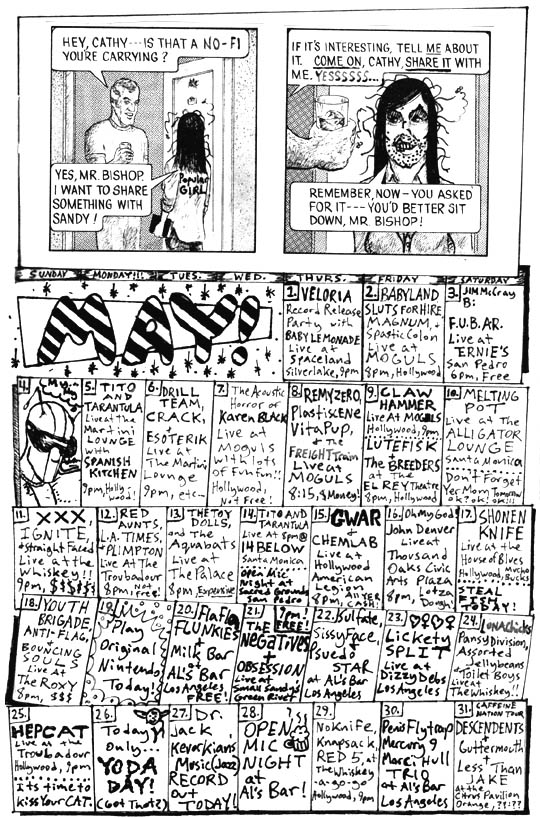 HEY, CATHY---IS THAT A NO-FI
YOU'RE CARRYING?
YES, MR. BISHOP.
I WANT TO SHARE
SOMETHING WITH
SANDY!
Popular
GIRL
IF IT'S INTERESTING, TELL ME ABOUT
IT. COME ON, CATHY, SHARE IT WITH
ME. YESSSSSS...
REMEMBER, NOW-YOU ASKED
FOR IT---YOU'D BETTER SIT
DOWN, MR. BISHOP!
SUNDAY MONDAY!!! TUES. WED. THURS. FRIDAY SATURDAY
MAY!
1. VELORIA
Record Release
Party with
BABY LEMONADE
Live at
Spaceland
Silverlake, 9pm
2. BABYLAND
SLUTS FOR HIRE
MAGNUM, +
Spastic Colon
Live at
MOGULS
8pm, Hollywood
3. JIM McCray
B:
F.U.B.AR.
Live at
ERNIE'S
San Pedro
6pm, Free
4.
5. TITO
AND
TARANTULA
Live at the
Martini
LOUNGE
with
SPANISH
KITCHEN
9pm, Hollywood!
6. DRILL
TEAM,
CRACK,
+
ESOTERIK
Live at
The Martini
Lounge
9pm, etc--
7. The Acoustic
Horror of
Karen BLACK
Live at
Moguls
with lots
of Fun Fun!!
Hollywood,
Not Free!
8. REMY ZERO,
Plastiscene
VitaPup,
+ the
FREIGHT train
Live at
MOGULS
8:15, $Money!
9. CLAW
HAMMER
Live At MOGULS
Hollywood, 9pm
LUTEFISK
+
The BREEDERS
at the
EL REY Theatre
8pm, Hollywood
10. MELTING
POT
Live at The
ALLIGATOR
LOUNGE
Santa Monica
Don't Forget
Yer Mom Tomorrow
ok? ok? ok!!!
11. XXX,
IGNITE,
+ Straight Faced
Live at the
Whiskey!!
9pm, $$$$$
12. RED
AUNTS,
L.A. TIMES,
+ PLIMPTON
Live At The
Troubadour
8pm, free!
13. THE TOY
DOLLS,
and The
Aquabats
Live at
The Palace
8pm, Expensive
14. TITO AND
TARANTULA
Live At 5pm@
14 BELOW
Santa Monica
Open Mic
Night at
Sacred Grounds
San Pedro
15. GWAR
+
CHEMLAB
Live at
Hollywood
American
Legion
8pm, All YER
CASH!
16. Oh My God!
John Denver
Live at
Thousand
Oaks Civic
Arts Plaza
8pm, Lotza
Dough!
17. SHONEN
KNIFE
Live at the
House of Blues
Hollywood, Mucho
Bucks
STEAL
TODAY!
18. YOUTH
BRIGADE,
ANTI-FLAG,
+
BOUNCING
SOULS
Live at
The ROXY
8pm, $$$
19.
Play
Original
Nintendo
Today!
20. Flafla
FLUNKIES
+
Milk Bar
at
AL'S BAR
Los Angeles
FREE!
21. 9pm!
FREE!
THE
NEGATIVES
+
OBSESSION
Live at
Small Sandys
Green Rivet
22. Sulfate,
SissyFace,
+
Psuedo
STAR
at Al's BAR
Los Angeles
23.
Lickety
SPLIT
Live at
Dizzy Debs
Los Angeles
24. LUNAChicks
Pansy Division,
Assorted
Jellybeans
+ Toilet Boys
Live at
The Whiskey!!
25.
HEPCAT
Live at the
Troubadour
Hollywood, 9pm
It's time to
kiss Your CAT.
26.
Today
only...
YODA
DAY!
(Got That?)
27. Dr.
Jack
Kevorkians
Music (Jazz)
RECORD
Out
TODAY!
28.
OPEN
MIC
NIGHT
at
Al's Bar!
29.
No Knife,
Knapsack,
RED 5, at
The Whiskey
-a-go-go
Hollywood, 9pm
30.
Penis Flytrap
Mercury 9
Marci Hull
TRIO
at Al's Bar
Los Angeles
31. CAFFEINE
NATION TOUR
DESCENDENTS
+
Guttermouth
+
Less Than
JAKE
at the
Citrus Pavilion
Orange, ?!??